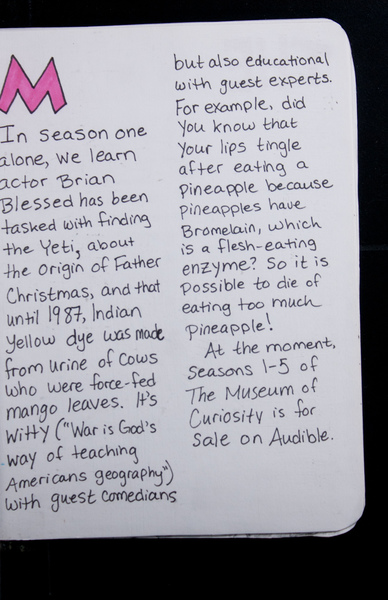 M
In season one
alone, we learn
actor Brian
Blessed has been
tasked with finding
the Yeti, about
the origin of Father
Christmas, and that
until 1987, Indian
Yellow dye was made
from urine of cows
who were force-fed
mango leaves. It's
witty ("War is God's
way of teaching
Americans geography")
with guest comedians
but also educational
with guest experts.
For example, did
you know that
your lips tingle
after eating a
pineapple because
pineapples have
Bromelain, which
is a flesh-eating
enzyme? So it is
possible to die of
eating too much
pineapple!
At the moment,
seasons 1-5 of
The Museum of
Curiosity is for
sale on Audible.